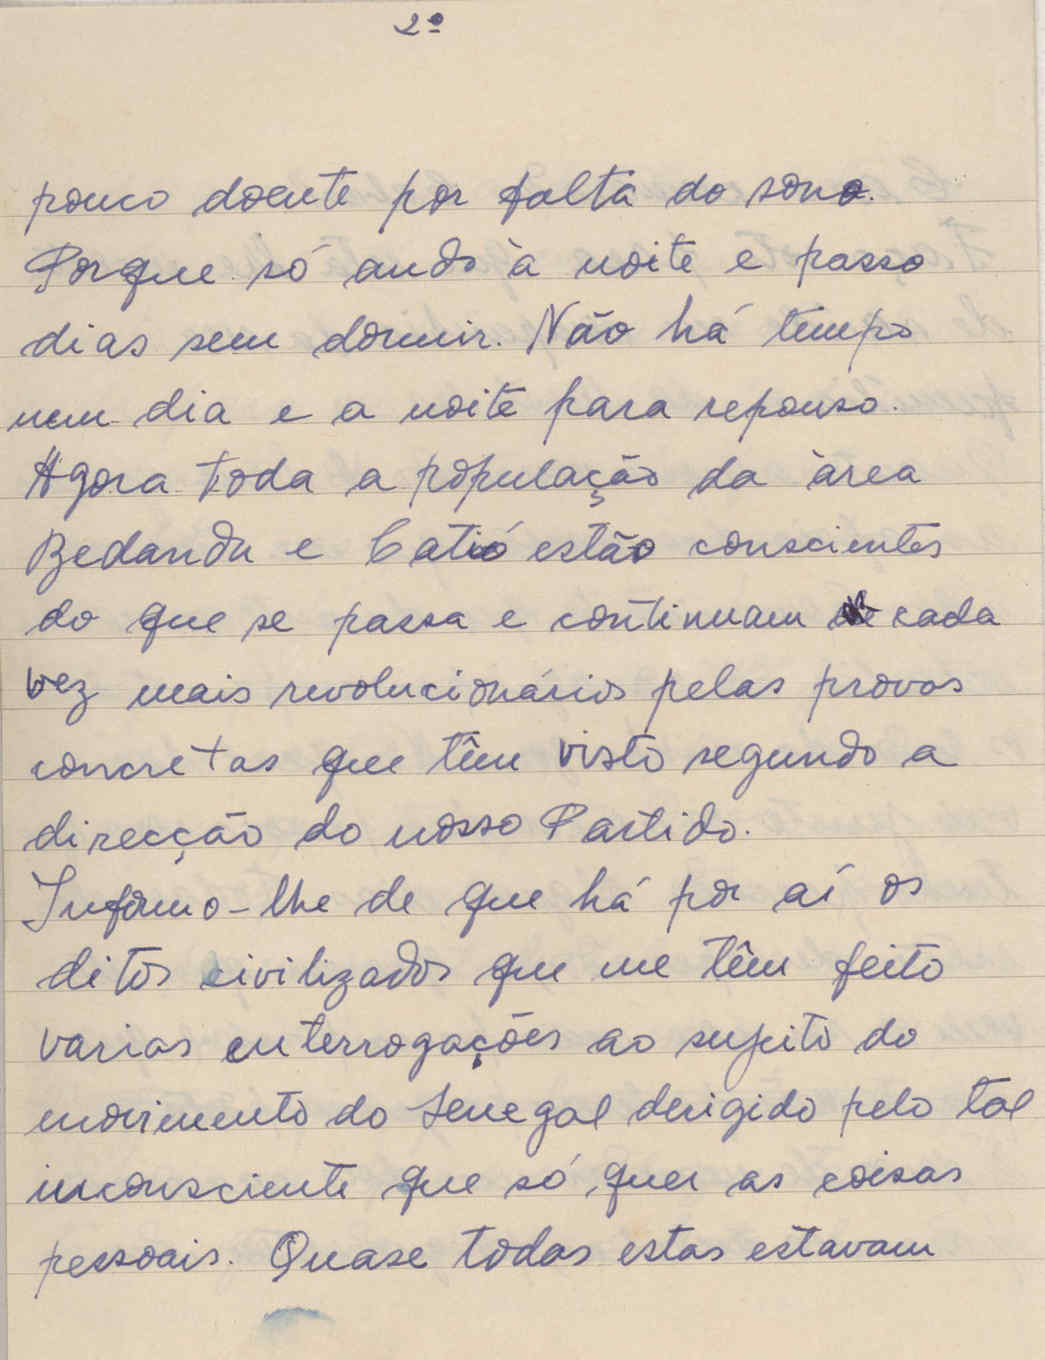 2º
pouco doente por falta do sono.
Porque só ando à noite e passo
dias sem dormir. Não há tempo
nem dia e a noite para repouso.
Agora toda a população da àrea
Bedanda e Catió estão conscientes
do que se passa e continuam cada
vez mais revolucionários pelas provas
concretas que têm visto segundo a
direcção do nosso Partido.
Informo-lhe de que há por aí os
ditos civilizados que me têm feito
varias enterrogações ao sujeito do
movimento do Senegal derigido pelo tal
inconsciente que só quer as coisas
pessoais. Quase todas estas estavam